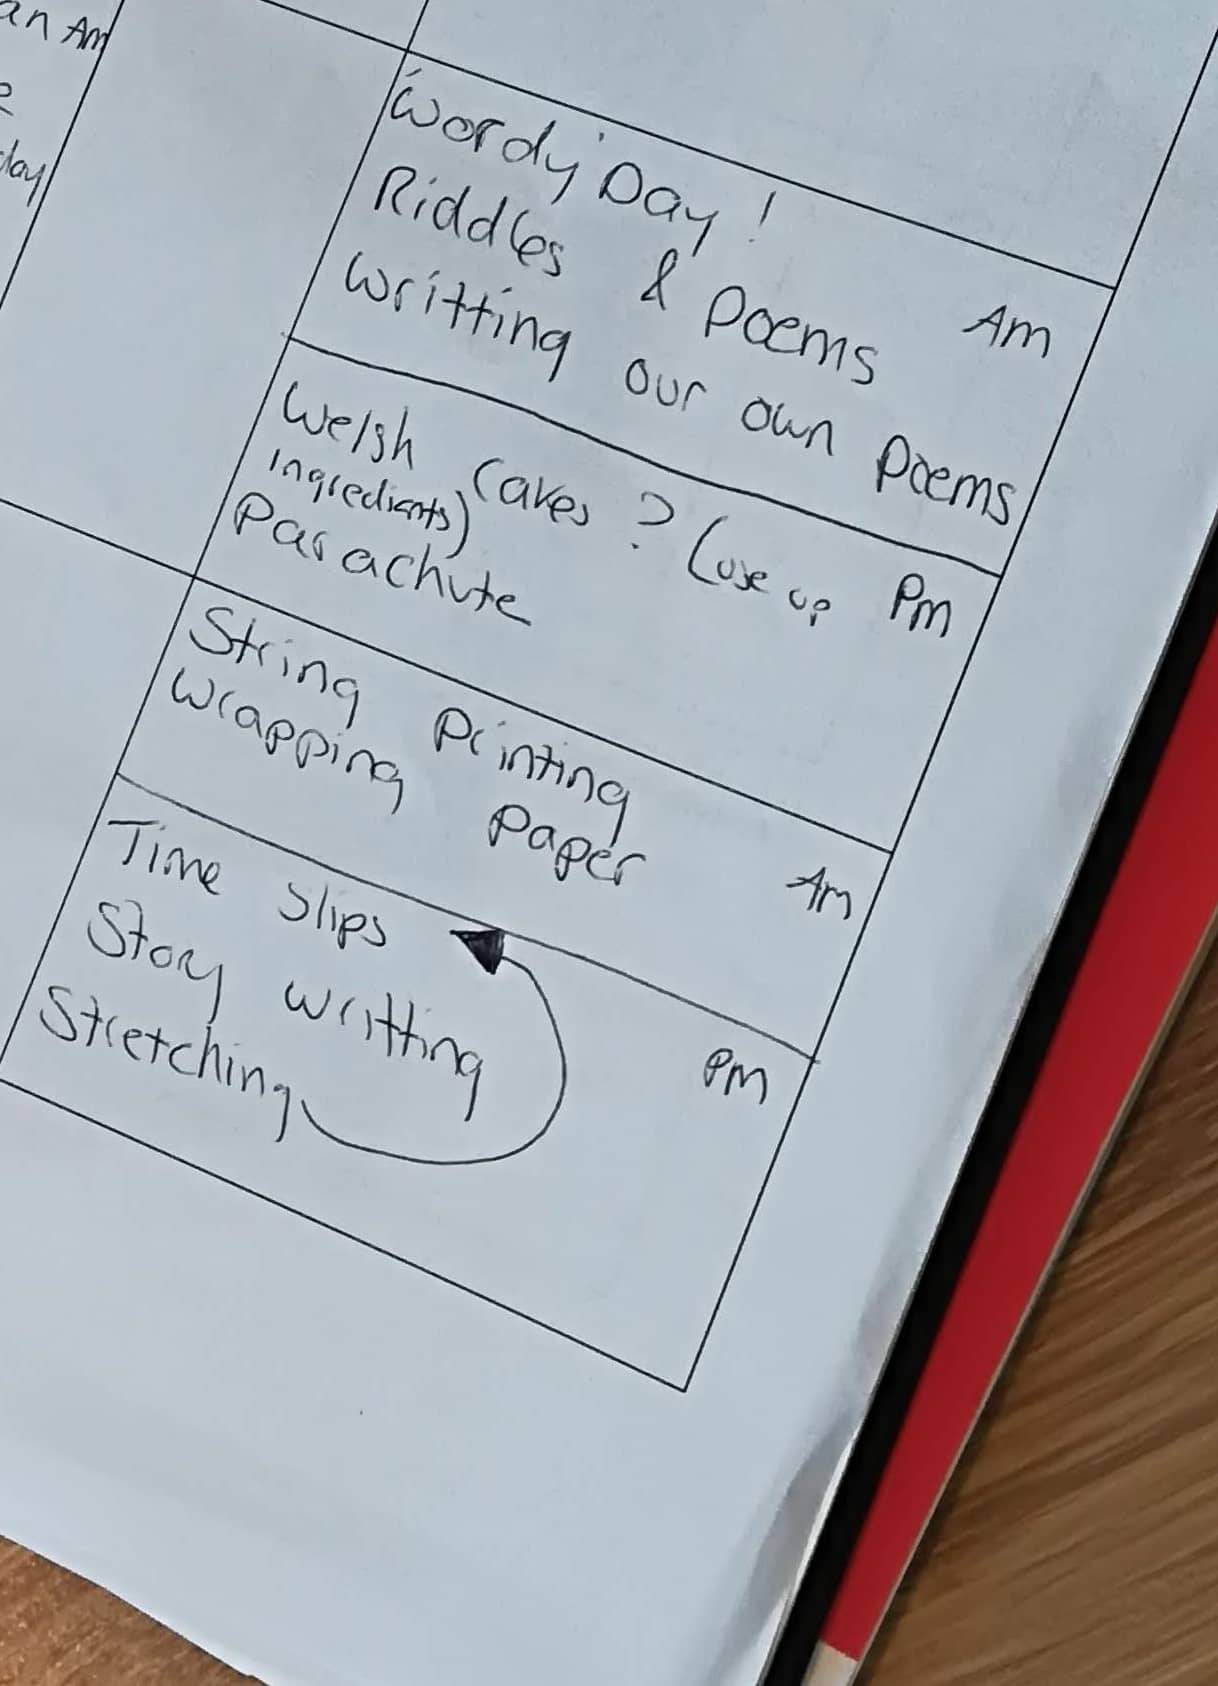 an Am
day
'Wordy' Day!
Riddles & Poems Am
Writting our own Poems
Welsh Cakes? (use up Pm
ingredients)
Parachute
String Printing
Wrapping Paper Am
Time Slips
Story Writting Pm
Stretching